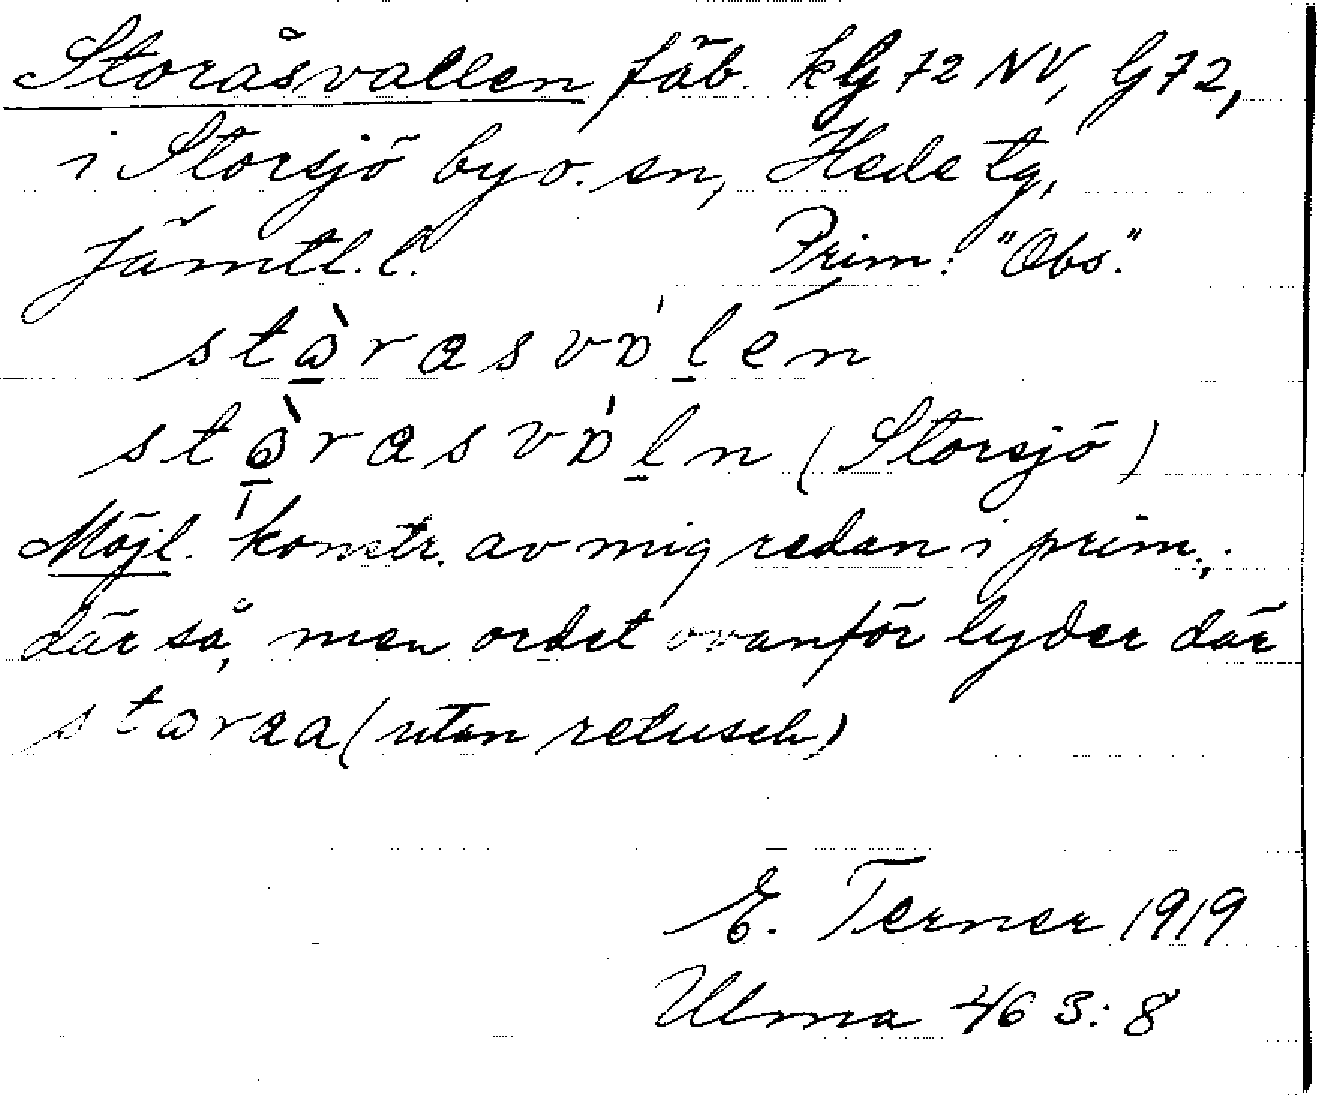 Storåsvallen fäb. kG 72 NV, G 72,
i Storsjö by o. sn, Hede tg,
Jämtl. l. Prim: "Obs."
stɷ̱̀rasvɒ̍ḻén
stɷ̱̀rasvɒ̍ḻn (Storsjö)
Möjl. konstr. av mig redan i prim.,
där så, men ordet ovanför lyder där
stɷraa (utan retusch)
E. Terner 1919
Ulma 46 3: 8